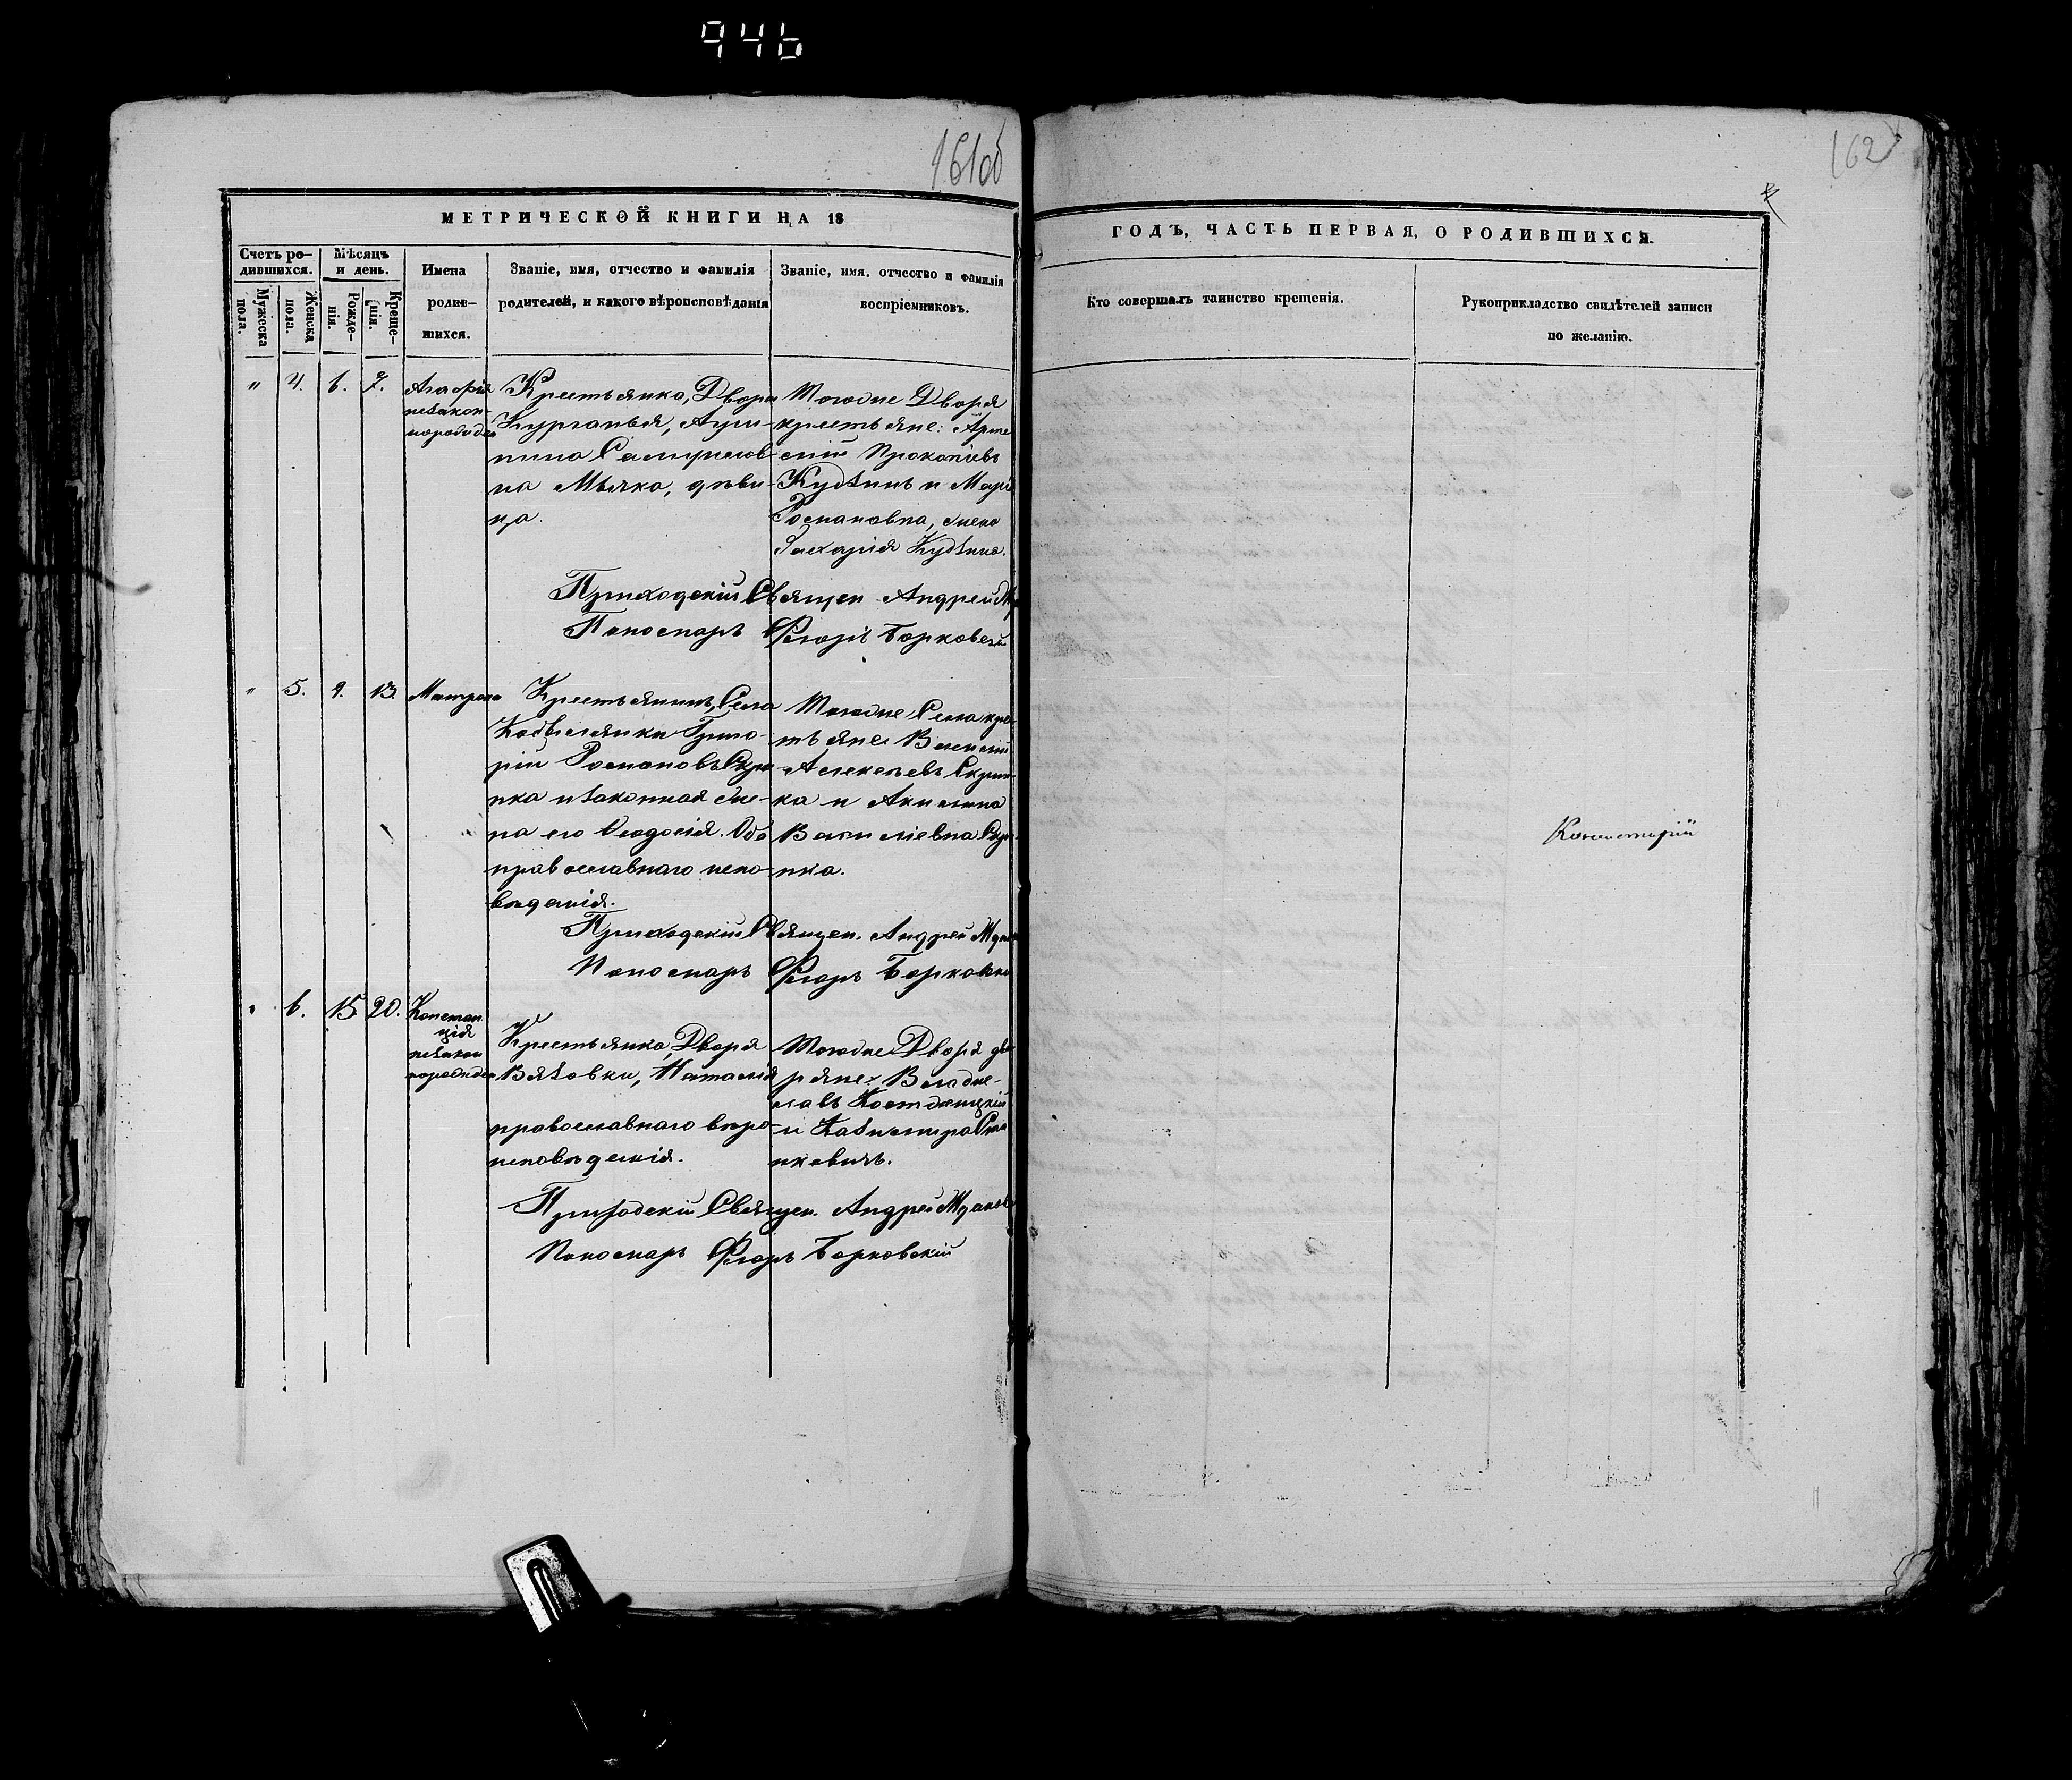 946
161об
162
МЕТРИЧЕСКОЙ КНИГИ НА 18
ГОДЪ, ЧАСТЬ ПЕРВАЯ, О РОДИВШИХСЯ.
Счетъ ро-
дившихся.
Мѣсяцъ
и день.
Мужеска
пола.
Женска
пола.
Рожде-
нія.
Креще-
нія.
Имена
родив-
шихся.
Званіе, имя, отчество и фамилія
родителей, и какого вѣроисповѣданія
Званіе, имя, отчество и фамилія
воспріемниковъ.
Кто совершалъ таинство крещенія.
Рукоприкладство свидѣтелей записи
по желанію.
" 4. 6. 7.
Агафія
незакон-
норожден
Крестьянка, Двора
Курганья, Агри-
пина Самуилов-
на Мѣлка, дѣви-
ца.
Тогоже Двора
крестьяне:
Прокопіевъ
Кудзинъ и Марія
Романовна, жена
Захарія Кудзина.
Приходскій Священ Андрей
Пономаръ Флоръ Борковскій
" 5. 9. 13. Матрона
Крестьянинъ, Села
Григо-
рій Романовъ Скри-
пка и законная же-
на его Ѳеодосія. Оба
православнаго испо-
вѣданія.
Тогоже Села крес-
тьяне Василій
Алексѣевъ Скрип-
ка и Акилина
Василіевна Скри-
пка.
Приходскій Священ. Андрей
Пономаръ Флоръ Борковскій
" 6. 15 20.
Констан
ція
незакон
норожден
Крестьянка, Двора
Вязовки, Наталія
православнаго вѣро-
исповѣданія.
Тогоже Двора дво-
ряне: Владис-
лавъ
и Казимира
нкевичъ.
Приходскій Священ. Андрей
Пономаръ Флоръ Борковскій
Консисторіи